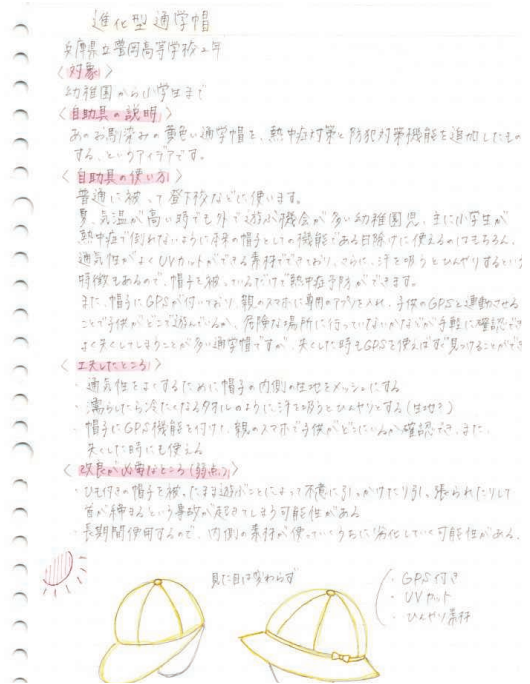 進化型通学帽
兵庫県立豊岡高等学校2年
〈対象〉
幼稚園から小学生まで
〈自助具の説明〉
あのお馴染みの黄色い通学帽を、熱中症対策と防犯対策機能を追加したもの
する、というアイデアです。
〈自助具の使い方〉
普通に被って登下校などに使います。
夏、気温が高い時でも外で遊ぶ機会が多い幼稚園児、主に小学生が
熱中症で倒れないように本来の帽子としての機能である日除けに使えるのはもちろん、
通気性がよくUVカットができる素材でできており、さらに、汗を吸うとひんやりするという
特徴もあるので、帽子を被っているだけで熱中症予防ができます。
また、帽子にGPSが付いており、親のスマホに専用のアプリを入れ、子供のGPSと連動させる
ことで子供がどこで遊んでいるか、危険な場所に行っていないかなどが手軽に確認でき
よく失くしてしまうことが多い通学帽ですが、失くした時もGPSを使えばすぐ見つけることができ
〈工夫したところ〉
・通気性をよくするために帽子の内側の生地をメッシュにする
・濡らしたら冷たくなるタオルのように汗を吸うとひんやりとする(生地?)
・帽子にGPS機能を付けて、親のスマホで子供がどこにいるか確認でき、また、
失くした時にも使える
〈改良が必要なところ(弱点)〉
・ひも付きの帽子を被ったまま遊ぶことによって不意に引っかけたり引っ張られたりして
首が絞まるという事故が起きてしまう可能性がある
・長期間使用するので、内側の素材が使っていくうちに劣化していく可能性がある。
見た目は変わらず
・GPS付き
・UVカット
・ひんやり素材